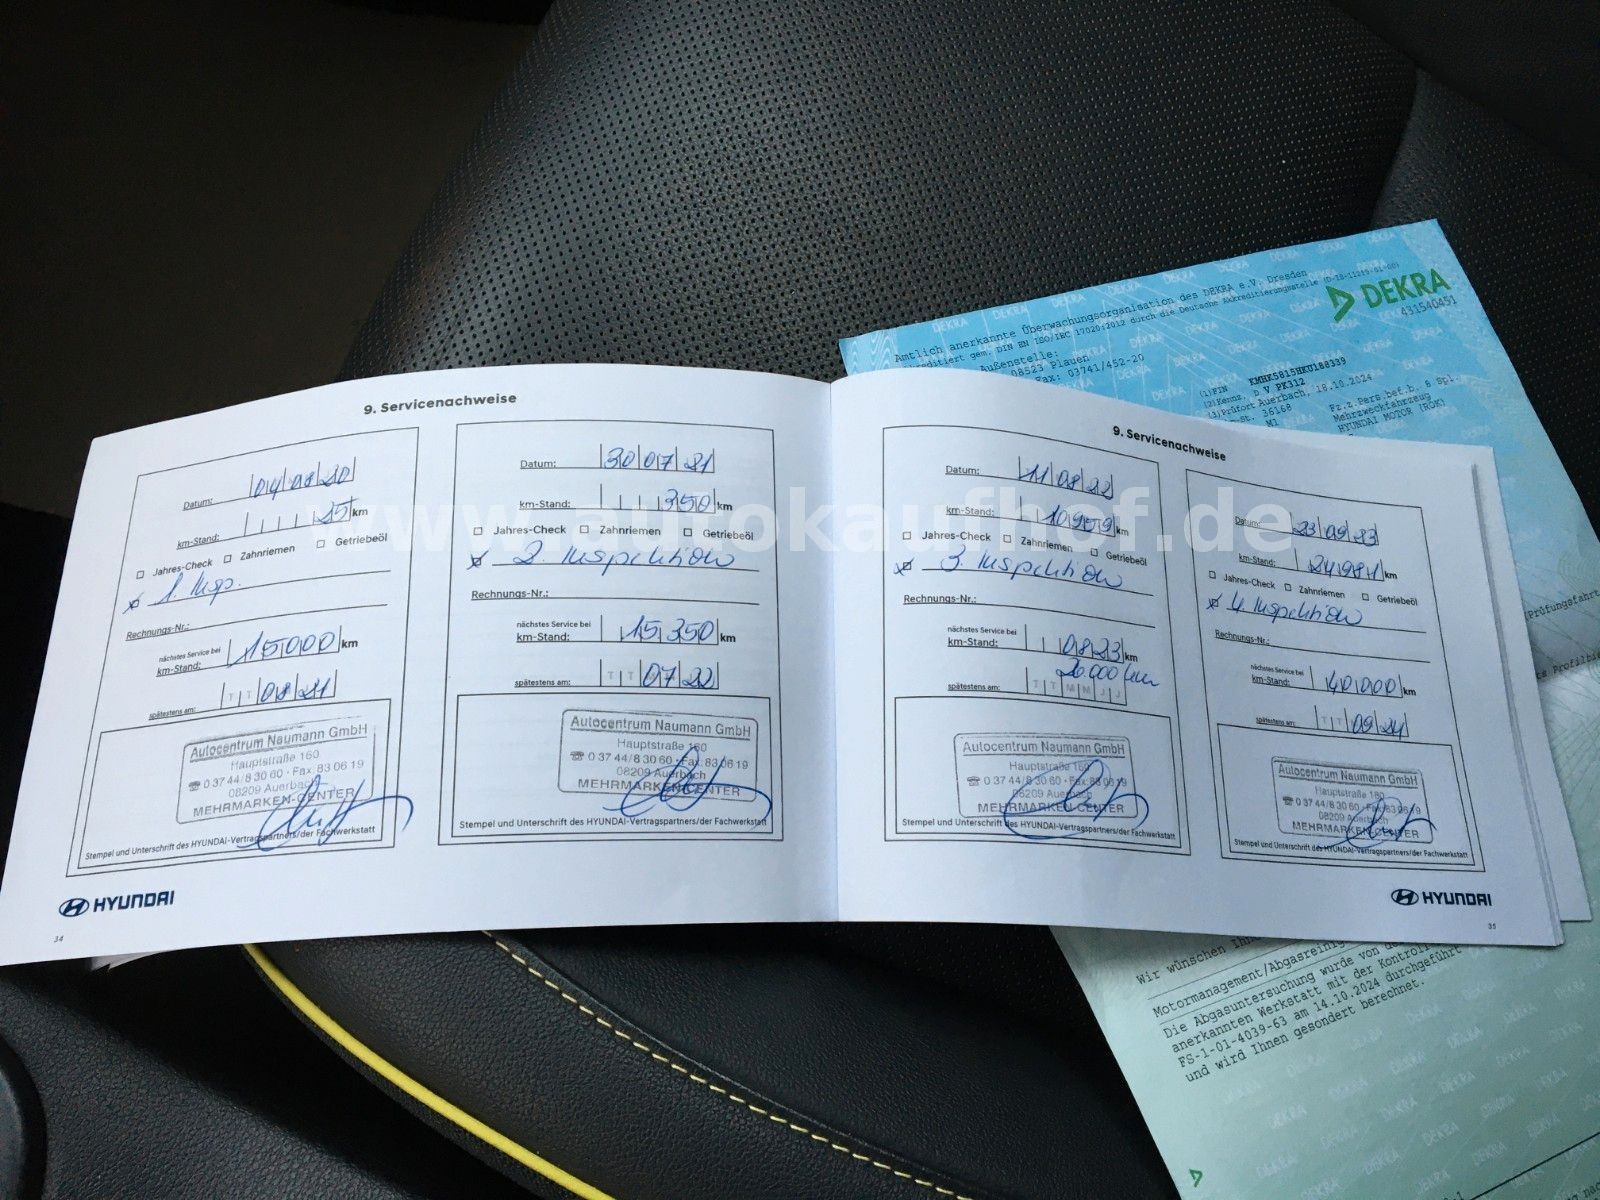 9. Servicenachweise
Datum: 04 08 20
km-Stand: 25 km
Jahres-Check Zahnriemen Getriebeöl
1. Insp.
Rechnungs-Nr.:
nächstes Service bei
km-Stand: 15000 km
spätestens am: T T 08 21
Autocentrum Naumann GmbH
Hauptstraße 160
☎ 0 37 44/8 30 60 · Fax: 83 06 19
08209 Auerbach
MEHRMARKEN-CENTER
Stempel und Unterschrift des HYUNDAI-Vertragspartners/der Fachwerkstatt
HYUNDAI
34
Datum: 30 07 21
km-Stand: 350 km
Jahres-Check Zahnriemen Getriebeöl
2. Inspektion
Rechnungs-Nr.:
nächstes Service bei
km-Stand: 15.350 km
spätestens am: T T 07 22
Autocentrum Naumann GmbH
Hauptstraße 160
☎ 0 37 44/8 30 60 · Fax: 83 06 19
08209 Auerbach
MEHRMARKEN-CENTER
Stempel und Unterschrift des HYUNDAI-Vertragspartners/der Fachwerkstatt
9. Servicenachweise
Datum: 11 08 22
km-Stand: 10959 km
Jahres-Check Zahnriemen Getriebeöl
3. Inspektion
Rechnungs-Nr.:
nächstes Service bei
km-Stand: 08 23 km
26.000 km
spätestens am: T T M M J J
Autocentrum Naumann GmbH
Hauptstraße 160
☎ 0 37 44/8 30 60 · Fax: 83 06 19
08209 Auerbach
MEHRMARKEN-CENTER
Stempel und Unterschrift des HYUNDAI-Vertragspartners/der Fachwerkstatt
Datum: 23 09 23
km-Stand: 24981 km
Jahres-Check Zahnriemen Getriebeöl
4. Inspektion
Rechnungs-Nr.:
nächstes Service bei
km-Stand: 40000 km
spätestens am: T T 09 24
Autocentrum Naumann GmbH
Hauptstraße 160
☎ 0 37 44/8 30 60 · Fax: 83 06 19
08209 Auerbach
MEHRMARKEN-CENTER
Stempel und Unterschrift des HYUNDAI-Vertragspartners/der Fachwerkstatt
HYUNDAI
35
www.autokaufhof.de
DEKRA
431540451
Amtlich anerkannte Überwachungsorganisation des DEKRA e.V. Dresden
gem. DIN EN ISO/IEC 17020:2012 durch die Deutsche Akkreditierungsstelle (D-IS-11219-01-00)
Außenstelle:
08523 Plauen
Fax: 03741/452-20
(1)FIN KMHK5815HKU188339
(2)Kennz. D V PK312
(3)Prüfort Auerbach, 18.10.2024
36168 Fz.z.Pers.bef.b. 8 Spl.
M1 Mehrzweckfahrzeug
HYUNDAI MOTOR (ROK)
Prüfungsfahrt
Wir wünschen
Motormanagement/Abgasreinig
Die Abgasuntersuchung wurde von de
anerkannten Werkstatt mit der Kontroll
FS-1-01-4039-63 am 14.10.2024 durchgeführt
und wird Ihnen gesondert berechnet.